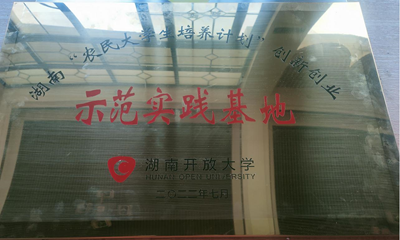 湖南“农民大学生培养计划”创新创业
示范实践基地
湖南开放大学
HUNAN OPEN UNIVERSITY
二〇二二年七月